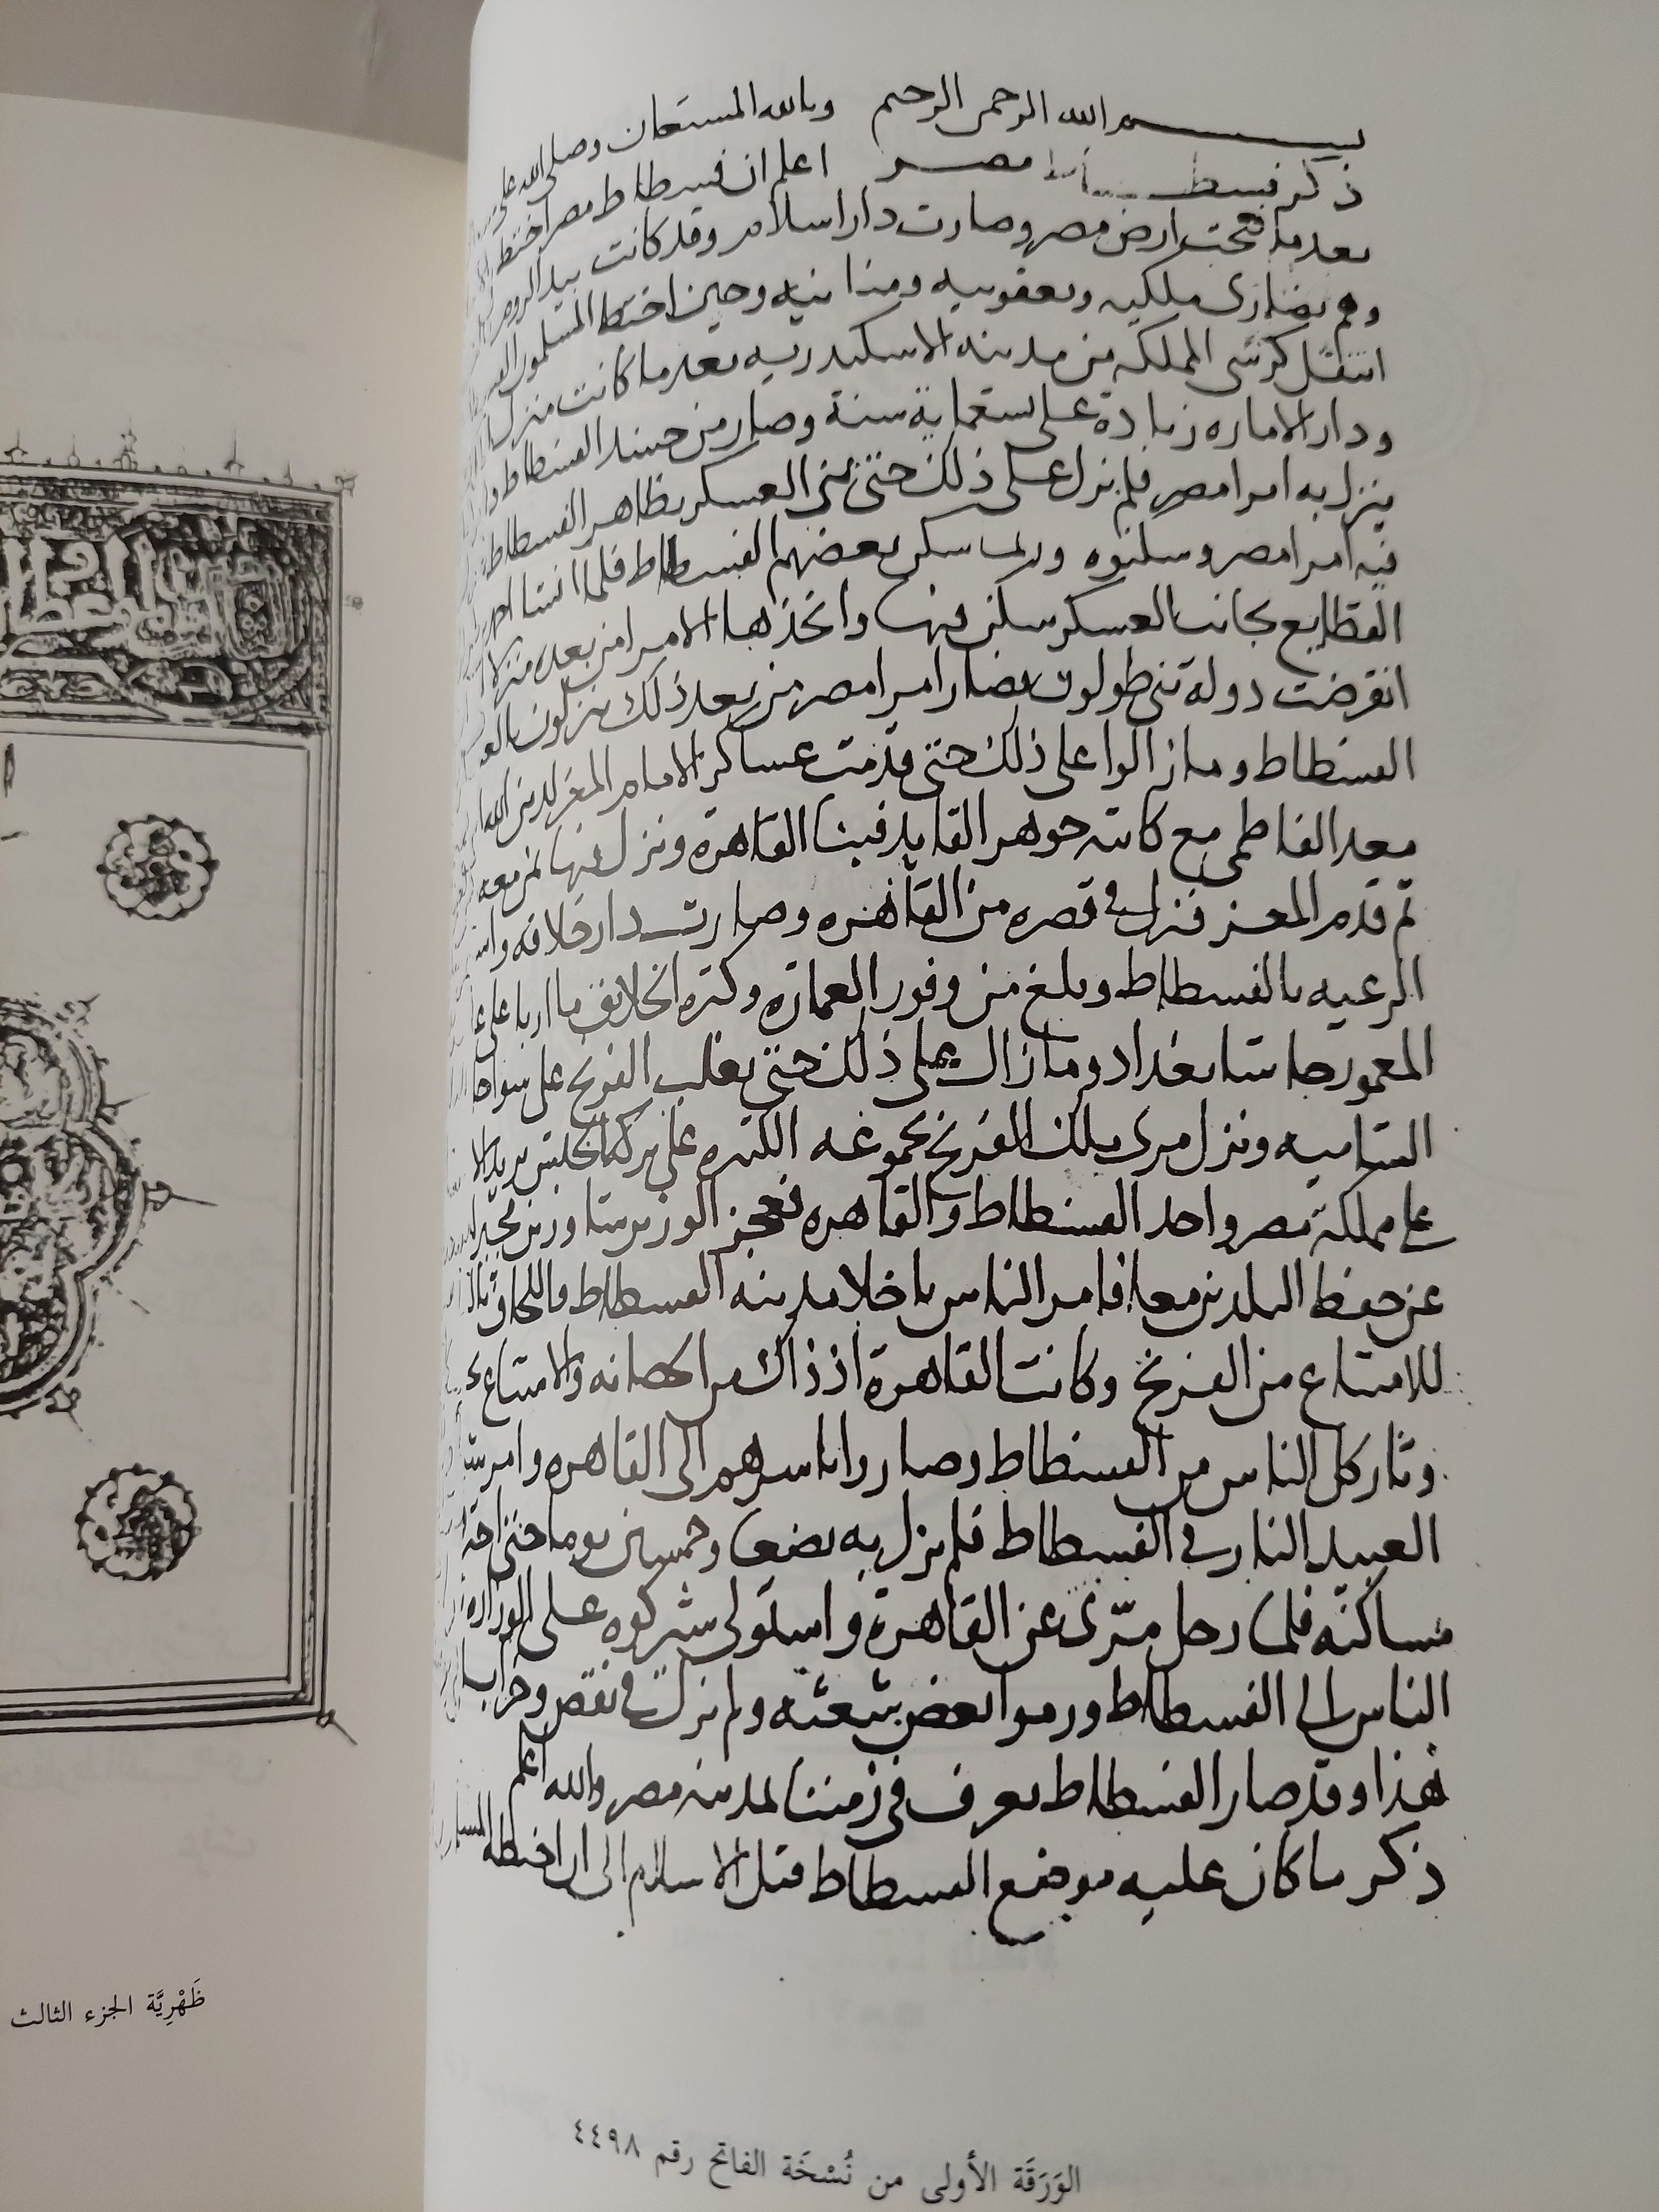 بسم الله الرحمن الرحيم وبالله المستعان وصلى الله على
ذكر فسطاط مصر اعلم ان فسطاط مصر اختط
بعد ما فتحت ارض مصر وصارت دار اسلام وقد كانت بيد الروم
وهم نصارى ملكيه ويعقوبيه ومنانيه وحين اختط المسلمون
انتقل كرسى المملكه من مدينه الاسكندريه بعد ما كانت منزل
ودار الاماره زيادة على تسعماية سنة وصار من حينيد الفسطاط
ينزل به امرا مصر فلم يزل على ذلك حتى بنى العسكر بظاهر الفسطاط
فيه امرا مصر وسكنوه وربما سكن بعضهم الفسطاط فلما انشا
القطايع بجانب العسكر سكن فيها واتخذها الامرا من بعده منزلا
انقرضت دولة بنى طولون فصار امرا مصر من بعد ذلك ينزلون
الفسطاط وما زالوا على ذلك حتى قدمت عساكر الامام المعز لدين الله
معد الفاطمى مع كاتبه جوهر القايد فبنا القاهرة ونزل فيها بمن معه
ثم قدم المعز فنزل فى قصره من القاهره وصارت دار خلافه
الرعيه بالفسطاط وبلغ من وفور العمارة وكثره الخلايق ما اربا على
المعمور حاشا بغداد وما زال على ذلك حتى تغلب الفرنج على سواحل
الشاميه ونزل مرى ملك الفرنج بجموعه الكثيره على بركه الحبش يريد
على مملكة مصر واخد الفسطاط والقاهره فعجز الوزير شاور بن مجير
عن حفظ البلدين معا فامر الناس باخلا مدينه الفسطاط واللحاق
للامتناع من الفرنج وكانت القاهرة اذ ذاك من الحصانه والامتناع
وثار كل الناس من الفسطاط وصاروا باسرهم الى القاهره وامر
العبيد النار فى الفسطاط فلم يزل به بضعا وخمسين يوما حتى
مساكنه فلما رحل مرّى عن القاهرة واستولى شيركوه على الوزاره
الناس الى الفسطاط ورموا بعض شعثه ولم يزل فى نقص وخراب
هذا وقد صار الفسطاط يعرف فى زمننا بمدينه مصر والله اعلم
ذكر ما كان عليه موضع الفسطاط قبل الاسلام الى ان اختطه
الوَرَقَة الأولى من نُسْخَة الفاتح رقم ٤٤٩٨
ظَهْرِيَّة الجزء الثالث